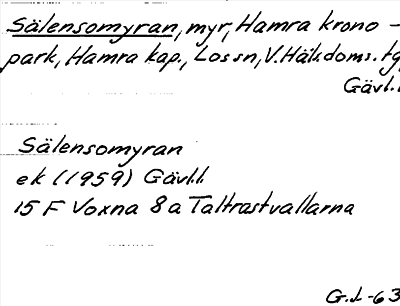 Sälensomyran, myr, Hamra krono-
park, Hamra kap., Los sn, V. Häls. doms. tg
Gävl.l
Sälensomyran
ek (1959) Gävl.l.
15 F Voxna 8a Taltrastvallarna
G.L-63